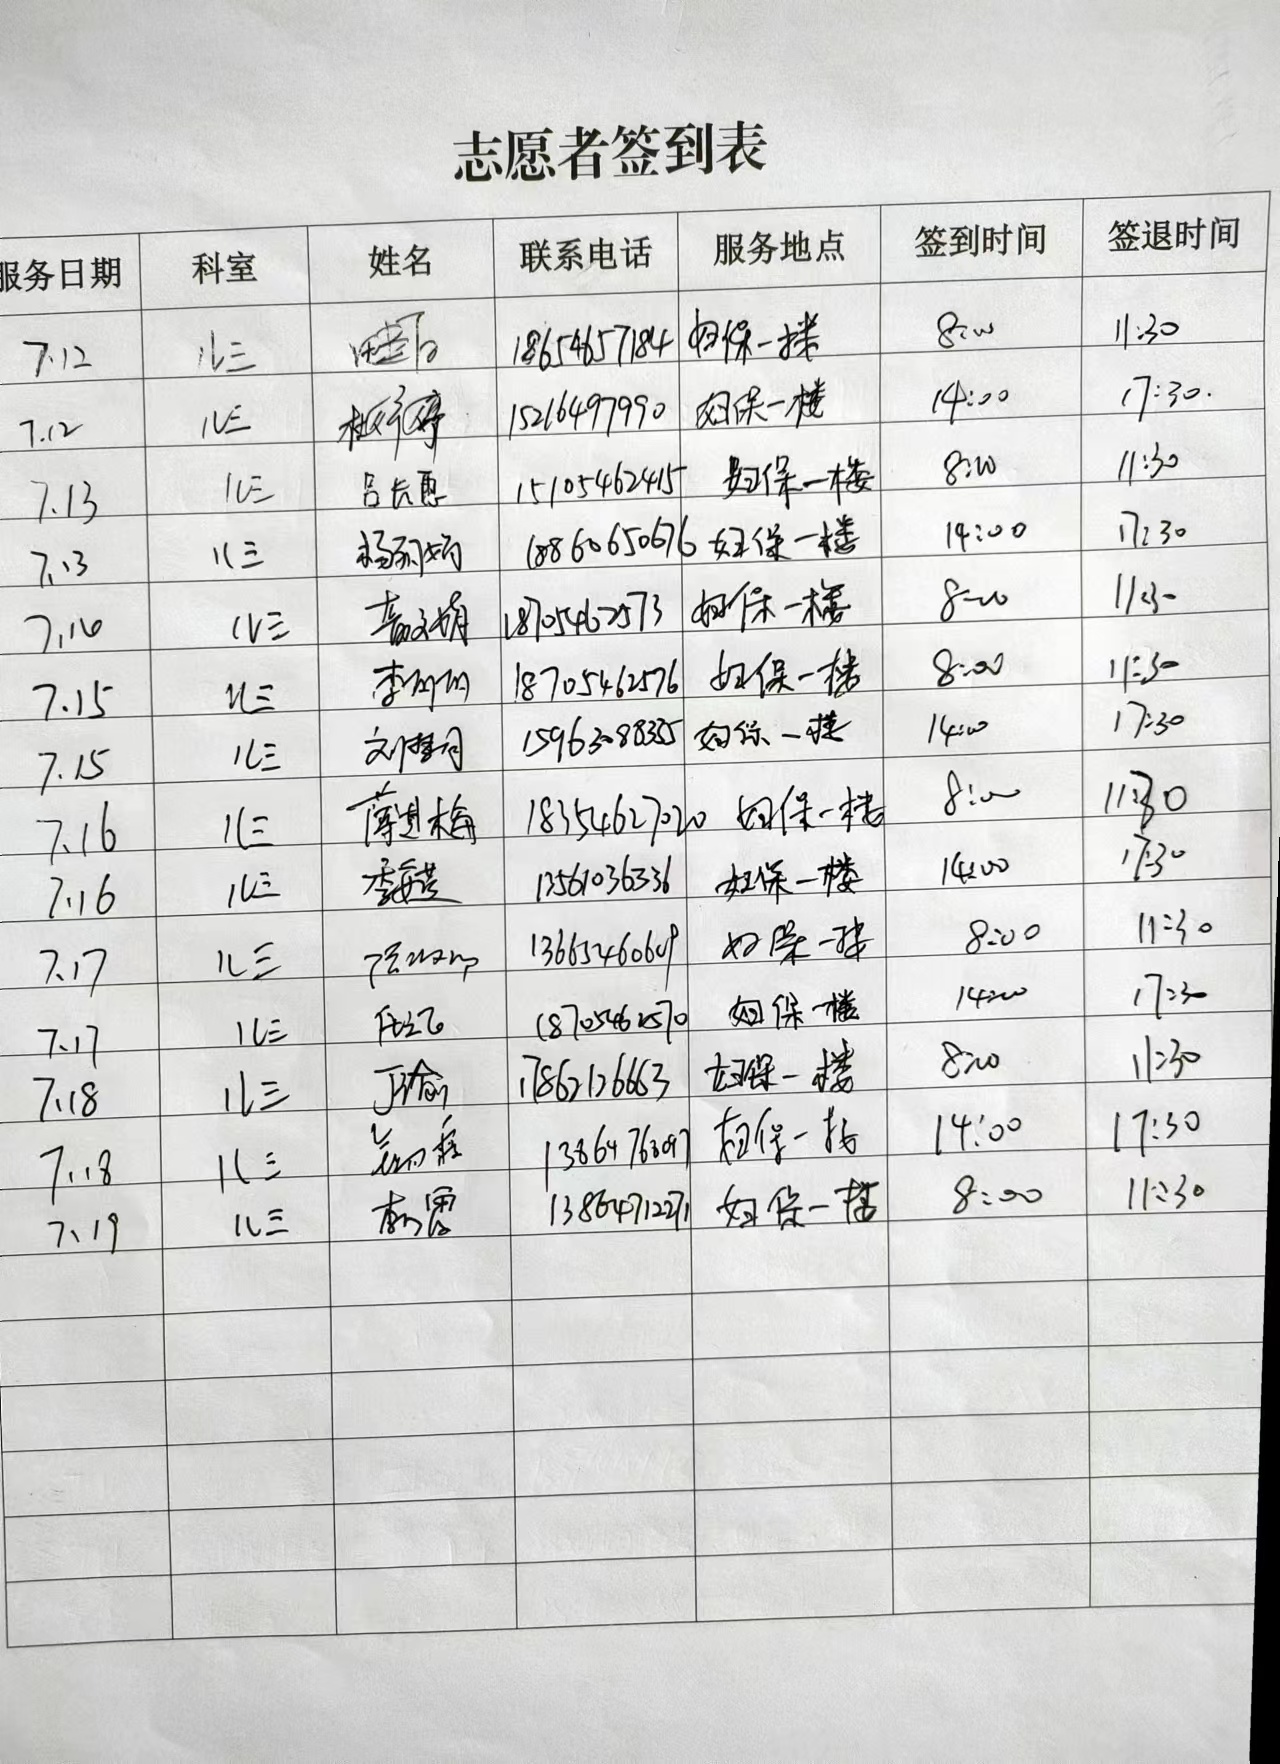 志愿者签到表
服务日期 科室 姓名 联系电话 服务地点 签到时间 签退时间
7.12 儿三 18654657184 妇保一楼 8:00 11:30
7.12 儿三 15216497990 妇保一楼 14:00 17:30.
7.13 儿三 吕长惠 15105462415 妇保一楼 8:00 11:30
7.13 儿三 18860650676 妇保一楼 14:00 17:30
儿三 18705462573 妇保一楼 8:00 11:30
7.15 儿三 李丽丽 18705462576 妇保一楼 8:00 11:30
7.15 儿三 15963088335 妇保一楼 14:00 17:30
7.16 儿三 薄进梅 18354627020 妇保一楼 8:00 11:30
7.16 儿三 13561036336 妇保一楼 14:00 17:30
7.17 儿三 妇保一楼 8:00 11:30
7.17 儿三 18705462570 妇保一楼 14:00 17:30
7.18 儿三 17862126663 妇保一楼 8:00 11:30
7.18 儿三 妇保一楼 14:00 17:30
7.19 儿三 13864712271 妇保一楼 8:00 11:30